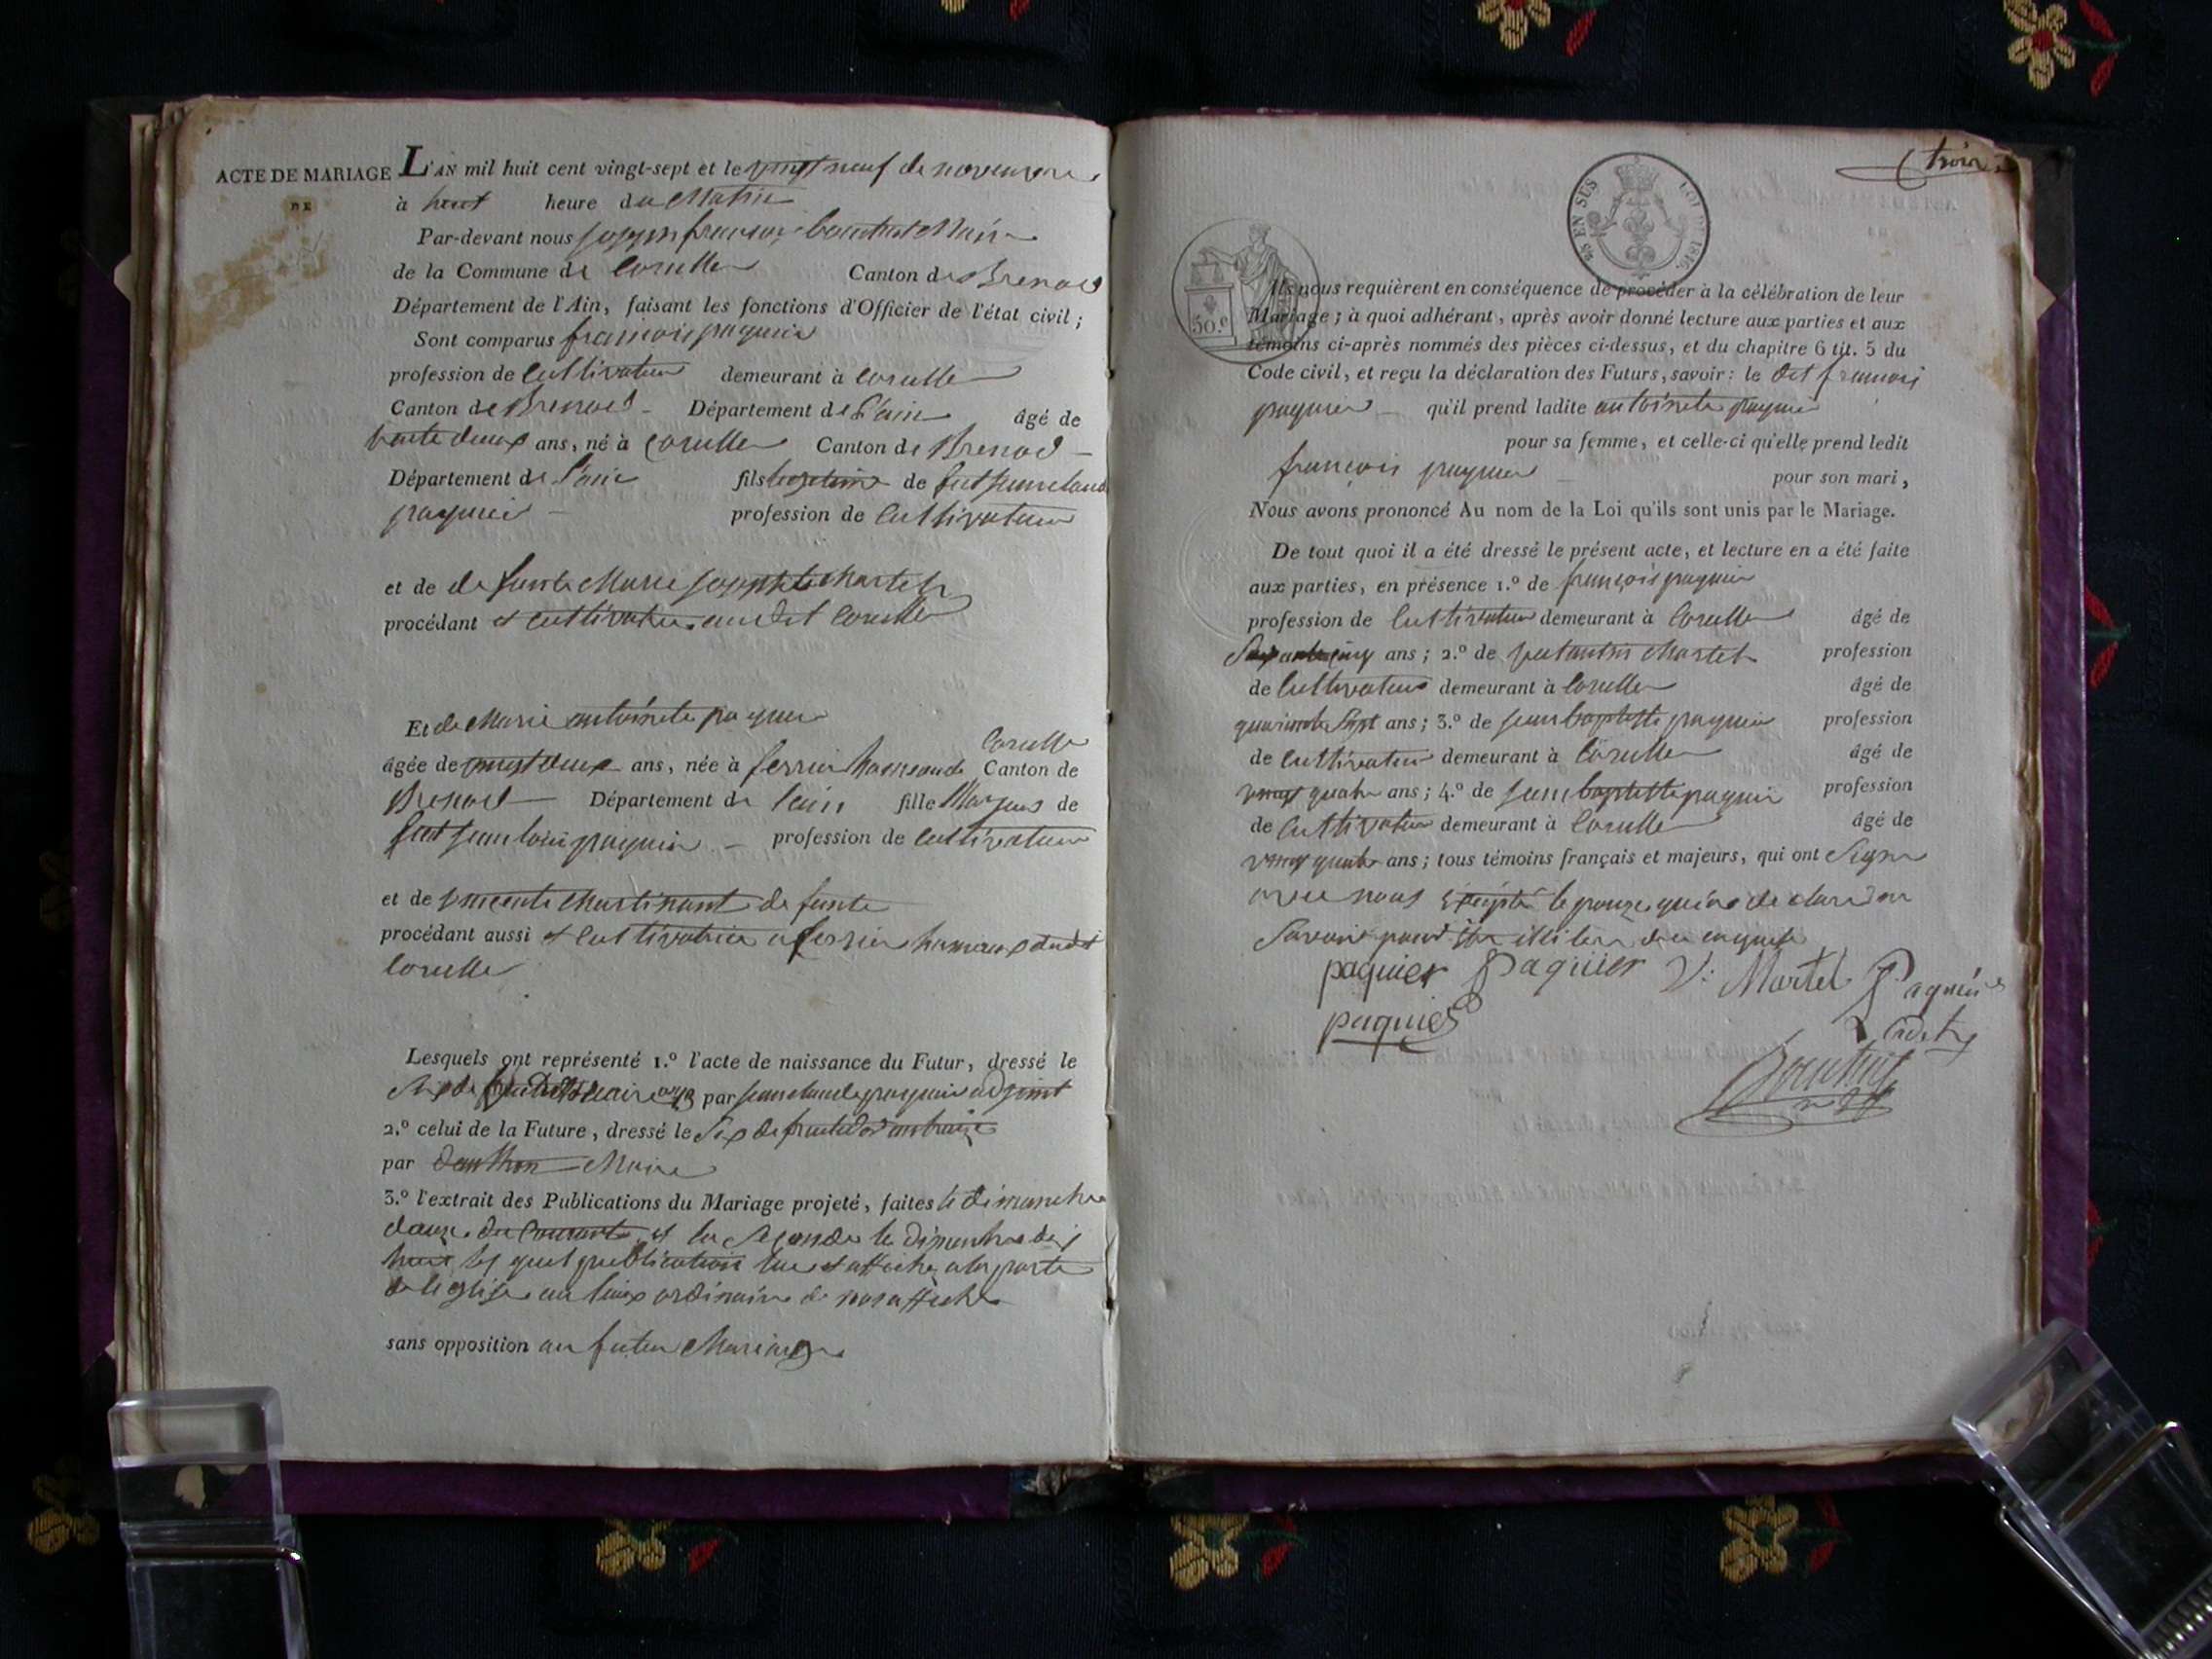 ACTE DE MARIAGE
DE
L'AN mil huit cent vingt-sept et le vingt neuf de novembre
à huit heure du Matin
Par-devant nous joseph françois Mair
de la Commune de Corcelle Canton de Brenod
Département de l'Ain, faisant les fonctions d'Officier de l'état civil;
Sont comparus françois paquier
profession de Cultivateur demeurant à Corcelle
Canton de Brenod Département de l'ain âgé de
trente deux ans, né à Corcelle Canton de Brenod
Département de l'ain fils de feut jean claud
paquier profession de Cultivateur
et de defunte Marie josephte Martel
procédant et cultivateur audit Corcelle
Et de Marie antoinete paquier
Corcelle
âgée de vingt deux ans, née à ferrier hameau de Canton de
Brenod Département de lain fille Majeur de
feut jean loui paquier profession de cultivateur
et de defunte
procédant aussi et Cultivatrice a ferrier hameaux dudit
Corcelle
Lesquels ont représenté 1.º l'acte de naissance du Futur, dressé le
par jean claude paquier adjoint
2.º celui de la Future, dressé le Six de fructidor an treize
par Maire
3.º l'extrait des Publications du Mariage projeté, faites le dimanche
du Courant et la Segonde le dimanche dix
huit les quel publication lue et affiche a la porte
de leglise au lieux ordinaire de nos affiche
sans opposition au futur Mariage
trois
EN SUS
LOI DE 1816.
50.c
Ils nous requièrent en conséquence de procéder à la célébration de leur
Mariage; à quoi adhérant, après avoir donné lecture aux parties et aux
témoins ci-après nommés des pièces ci-dessus, et du chapitre 6 tit. 5 du
Code civil, et reçu la déclaration des Futurs, savoir: le dit françois
paquier qu'il prend ladite antoinete paquier
pour sa femme, et celle-ci qu'elle prend ledit
françois paquier pour son mari,
Nous avons prononcé Au nom de la Loi qu'ils sont unis par le Mariage.
De tout quoi il a été dressé le présent acte, et lecture en a été faite
aux parties, en présence 1.º de françois paquier
profession de Cultivateur demeurant à Corcelle âgé de
ans; 2.º de Martel profession
de Cultivateur demeurant à Corcelle âgé de
quarante Sept ans; 3.º de jean baptiste paquier profession
de Cultivateur demeurant à Corcelle âgé de
vingt quatre ans; 4.º de jean baptiste paquier profession
de Cultivateur demeurant à Corcelle âgé de
vingt quatre ans; tous témoins français et majeurs, qui ont Signe
avec nous excepté le pouze qui a declare don
Savoir pour illitere de ce enquete
paquier Paquier V: Martel Paquier
paquier Cadet
Bouthut